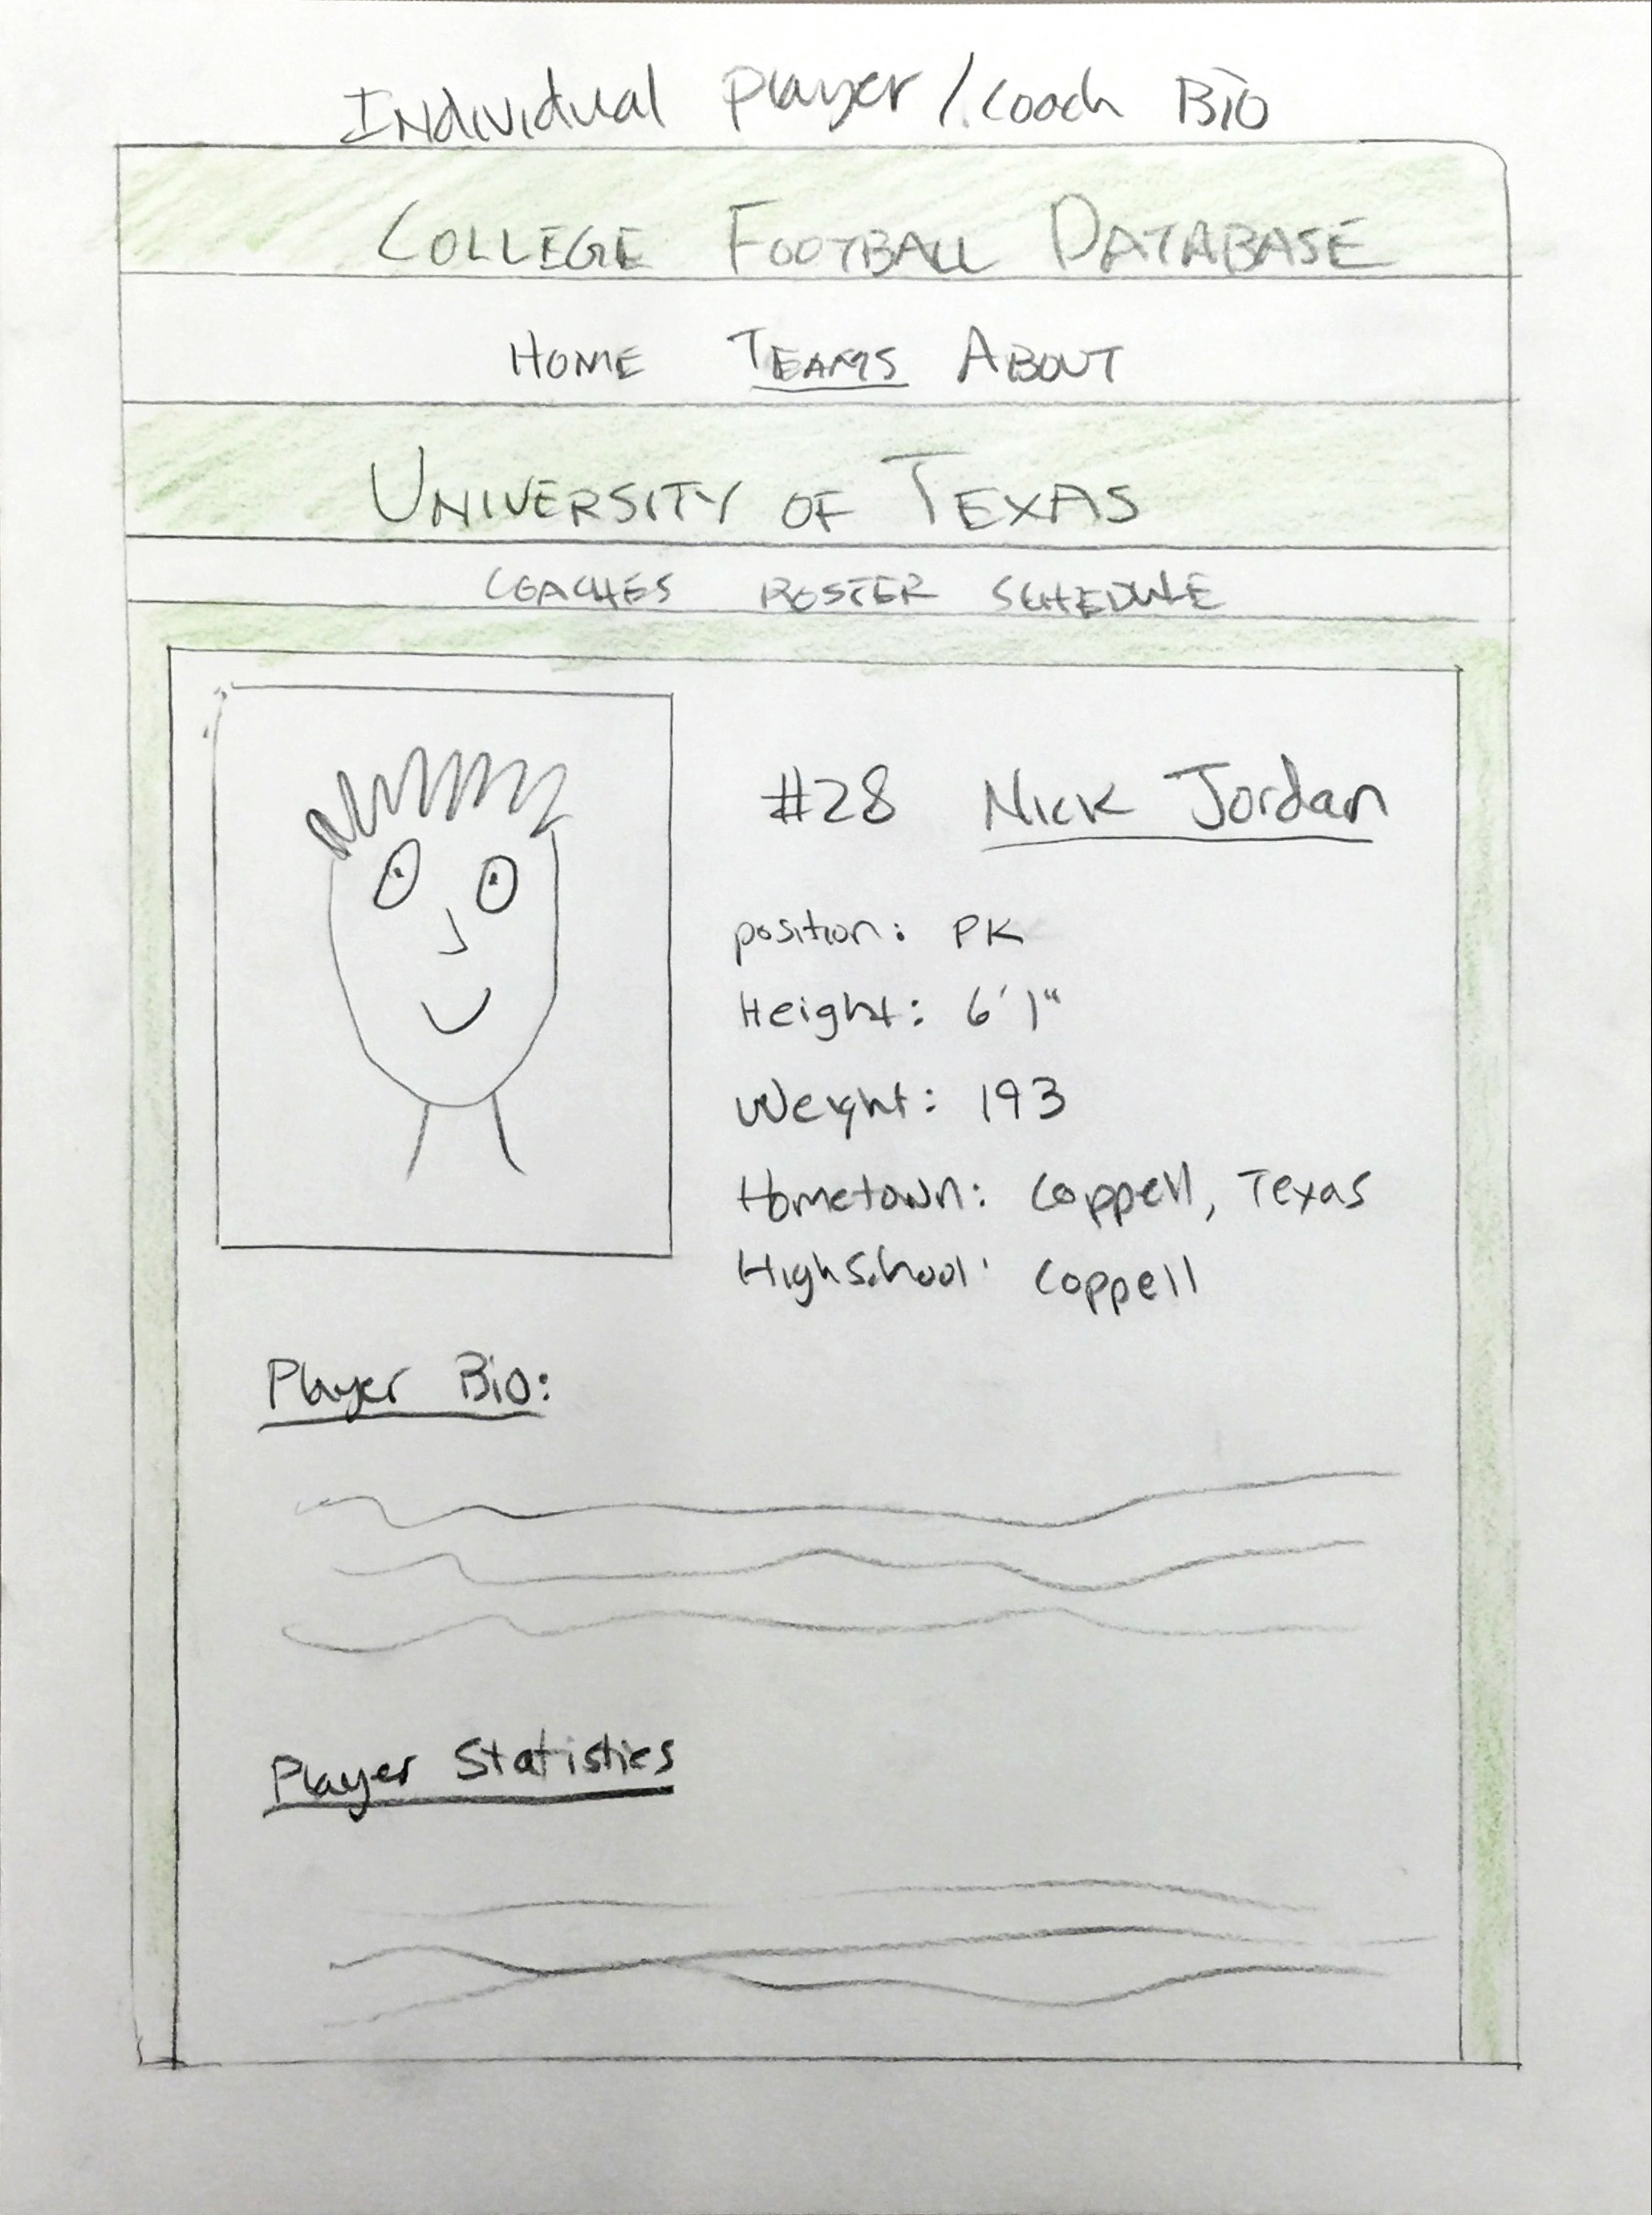 Individual Player / Coach Bio
COLLEGE FOOTBALL DATABASE
HOME TEAMS ABOUT
UNIVERSITY OF TEXAS
COACHES ROSTER SCHEDULE
#28 Nick Jordan
position: PK
Height: 6'1"
Weight: 193
Hometown: Coppell, Texas
High School: Coppell
Player Bio:
Player Statistics